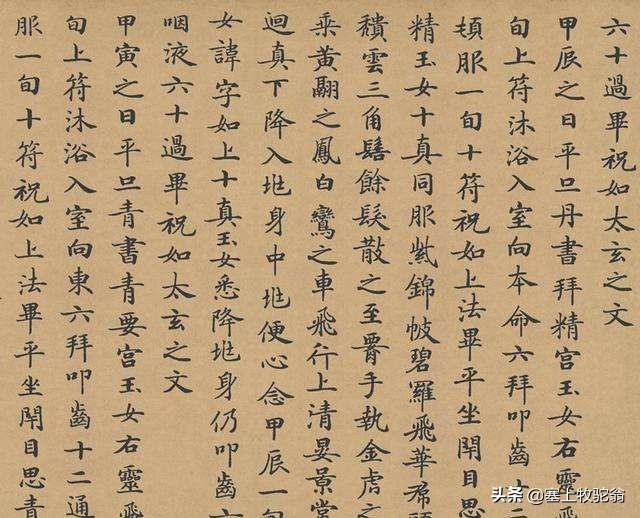 六十過畢祝如太玄之文
甲辰之日平旦丹書拜精宮玉女右靈飛
旬上符沐浴入室向本命六拜叩齒十二
頓服一旬十符祝如上法畢平坐閉目思
精玉女十真同服紫錦帔碧羅飛華帬
穨雲三角髻餘髮散之至𦝫手執金虎之
乘黃翮之鳳白鸞之車飛行上清晏景常
迴真下降入𡉏身中𡉏便心念甲辰一旬
女諱字如上十真玉女悉降𡉏身仍叩齒六
咽液六十過畢祝如太玄之文
甲寅之日平旦青書青要宮玉女右靈飛
旬上符沐浴入室向東六拜叩齒十二通
服一旬十符祝如上法畢平坐閉目思青
头条 @塞上牧驼翁